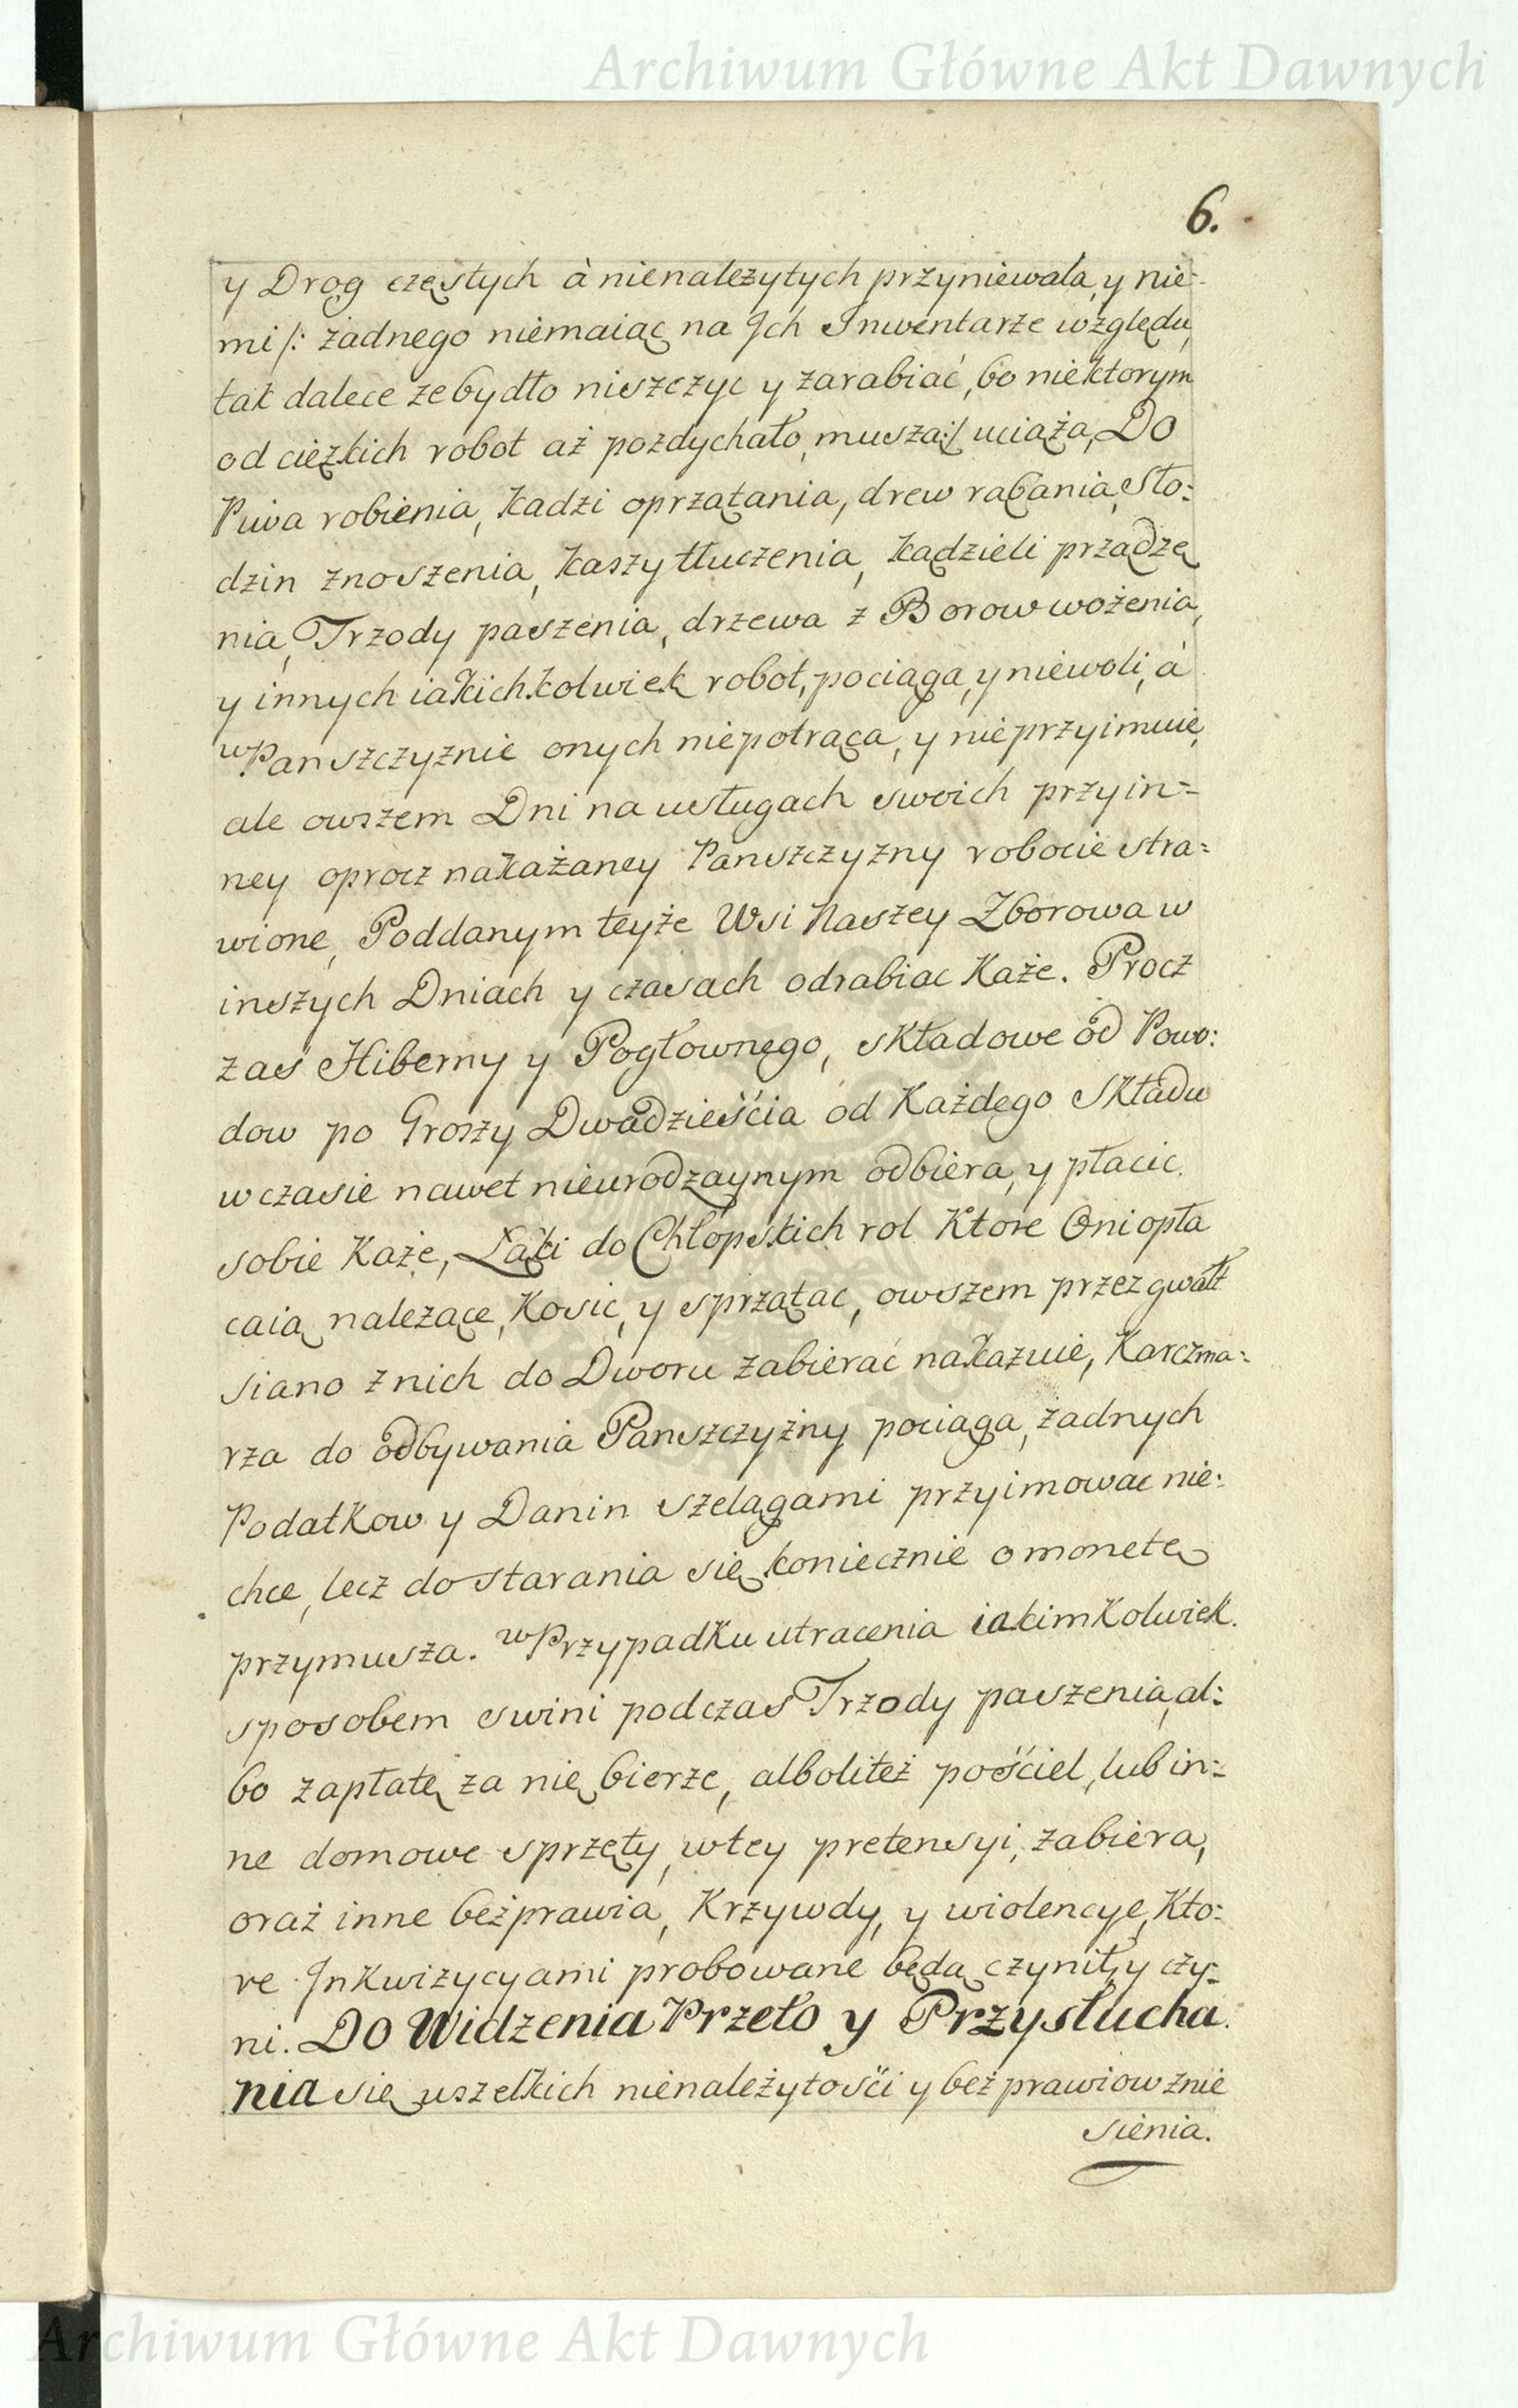 Archiwum Główne Akt Dawnych
6.
y Drog częstych à nienalezytych przyniewala, y nie-
mi /: żadnego niemaiąc na Ich Inwentarze względu,
tak dalece ze bydło niszczyc y zarabiać, bo niektorym
od cięzkich robot aż pozdychało, muszą :/ uciąża, Do
Piwa robienia, Kadzi oprzątania, drew rąbania, Sło-
dzin znoszenia, kaszy tłuczenia, kądzieli prządze
nia, Trzody paszenia, drzewa z Borow wożenia,
y innych iakichkolwiek robot, pociąga, y niewoli, à
w Panszczyznie onych niepotrąca, y nieprzyimuie,
ale owszem Dni na usługach swoich przy in-
ney oprocz nakażaney Panszczyzny robocie stra-
wione, Poddanym teyże Wsi Naszey Zborowa w
inszych Dniach y czasach odrabiac Każe. Procz
zaś Hiberny y Pogłownego, składowe od Powo:
dow po Groszy Dwadzieścia od Każdego Składu
w czasie nawet nieurodzaynym odbiera, y płacic
sobie Każe, Łąki do Chłopskich rol Ktore Oni opła
caią nalezące, Kosic, y sprzątac, owszem przez gwałt
siano z nich do Dworu zabierać nakazuie, Karczma-
rza do odbywania Panszczyżny pociąga, żadnych
Podatkow y Danin szelągami przyimowac nie:
chce, lecz do starania się koniecznie o monetę
przymusza. w Przypadku utracenia iakimkolwiek
sposobem swini podczas Trzody paszenia, al:
bo zapłatę za nię bierze, alboliteż pościel, lub in-
ne domowe sprzęty, w tey pretensyi, zabiera,
oraż inne beżprawia, Krzywdy, y wiolencye, Kto:
re Inkwizycyami probowane będą czynił, y czy-
ni. Do Widzenia Przeto y Przysłucha
nia się uszelkich nienależytości y beżprawiow znie
sienia.
Archiwum Główne Akt Dawnych